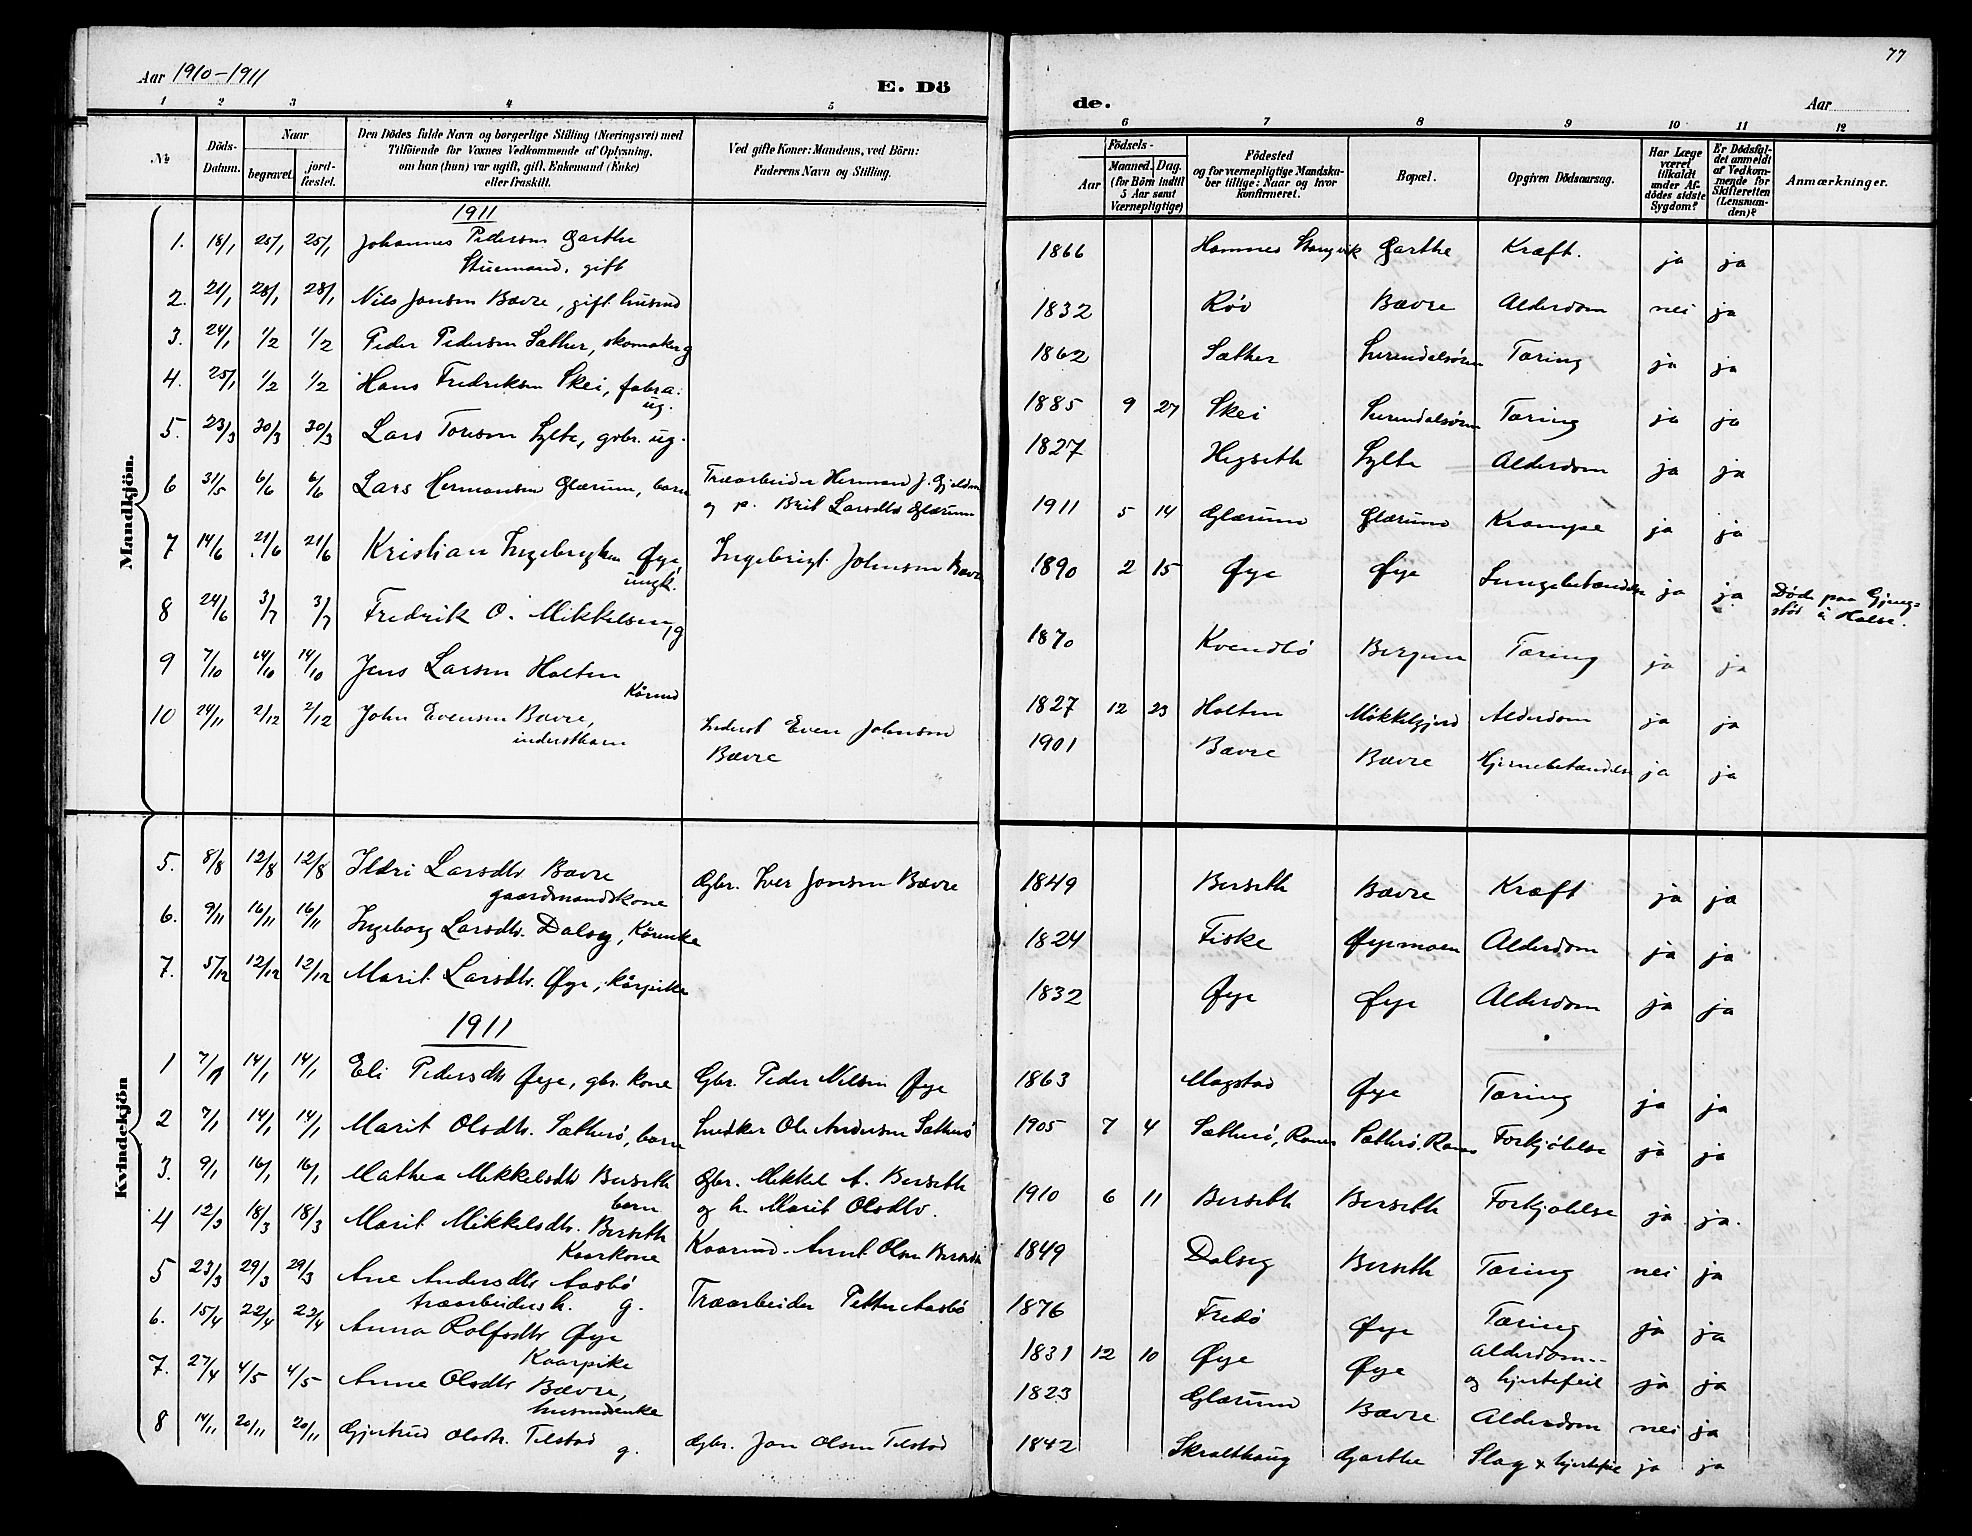 Aar 1910-1911
E. Dö
de.
Aar
77
1 2 3 4 5
6 7 8 9 10 11 12
№
Döds-Datum.
Naar
begravet.
jord-fæstet.
Den Dödes fulde Navn og borgerlige Stilling (Næringsvei) med
Tilföiende for Voxnes Vedkommende af Oplysning,
om han (hun) var ugift, gift, Enkemand (Enke)
eller fraskilt.
Ved gifte Koner: Mandens, ved Börn:
Faderens Navn og Stilling.
Födsels-
Aar
Maaned. Dag.
(for Börn indtil
5 Aar samt
Værnepligtige)
Födested
og for værnepligtige Mandska-
ber tillige: Naar og hvor
konfirmeret.
Bopæl.
Opgiven Dödsaarsag.
Har Læge
været
tilkaldt
under Af-
dödes sidste
Sygdom?
Er Dödsfal-
det anmeldt
af Vedkom-
mende for
Skifteretten
(Lensman-
den)?
Anmærkninger.
Mandkjön.
1911
1. 18/1 25/1 25/1 Johannes Pedersen Garthe 1866 Hamnes Stangvik Garthe Kræft. ja ja
Stuemand, gift
2. 21/1 28/1 28/1 Nils Jonsen Bævre, gift husmd 1832 Røv Bævre Alderdom nei ja
3. 24/1 1/2 1/2 Peder Pedersen Sæther, skomaker g 1862 Sæther Surendalsøren Tæring ja ja
4. 25/1 1/2 1/2 Hans Fredriksen Skei, fabra: 1885 9 27 Skei Surendalsøren Tæring ja ja
ug.
5. 23/3 30/3 30/3 Lars Toresen Sylte, gbr. ug. 1827 Hegseth Sylte Alderdom ja ja
6 31/5 6/6 6/6 Lars Hermansen Glærum, barn Træarbeider Herman J. 1911 5 14 Glærum Glærum Krampe ja ja
og p. Brit Larsdtr Glærum
7 14/6 21/6 21/6 Kristian Ingebrigtsen Øye, Ingebrigt Johnsen Bævre 1890 2 15 Øye Øye Lungebetændelse ja ja Døde paa
ungk. i Halse.
8 24/6 3/7 3/7 Fredrik O. Mikkelsen, g 1870 Kvendbø Bergen Tæring ja ja
9 7/10 14/10 14/10 Jens Larsen Holten 1827 12 23 Holten Mikkelgjerd Alderdom ja ja
Kårmd
10 24/11 2/12 2/12 John Evensen Bævre, Inderst Even Johnsen 1901 Bævre Bævre Hjernebetændelse ja ja
inderstbarn Bævre
Kvindekjön
5. 8/8 12/8 12/8 Ildri Larsdtr Bævre Gbr. Iver Jonsen Bævre 1849 Berseth Bævre Kræft ja ja
gaardmandskone
6. 9/11 16/11 16/11 Ingeborg Larsdtr. Dalseg, Kårenke 1824 Fiske Øyemoen Alderdom ja ja
7. 5/12 12/12 12/12 Marit Larsdtr. Øye, kårpike 1832 Øye Øye Alderdom ja ja
1911
1 7/1 14/1 14/1 Eli Pedersdtr Øye, gbr. kone Gbr. Peder Nilsen Øye 1863 Mogstad Øye Tæring ja ja
2 7/1 14/1 14/1 Marit Olsdtr. Sætherø, barn Snedker Ole Andersen Sætherø 1905 7 4 Sætherø, Ranes Sætherø, Ranes Forkjølelse ja ja
3. 9/1 16/1 16/1 Mathea Mikkelsdtr Berseth Gbr. Mikkel A. Berseth 1910 6 11 Berseth Berseth Forkjølelse ja ja.
barn og h. Marit Olsdtr.
4 12/3 18/3 18/3 Marit Mikkelsdtr. Berseth Kaarmd. Arnt Olsen Berseth 1849 Dalseg Berseth Tæring nei ja
Kaarkone
5 23/3 29/3 29/3 Ane Andersdtr Aasbø Træarbeider Petter Aasbø 1876 Fredø Øye Tæring ja ja
træarbeidersk. g.
6. 15/4 22/4 22/4 Anna Rolfsdtr Øye 1831 12 10 Øye Øye Alderdom-- ja ja
Kaarpike og hjertefeil
7. 27/4 4/5 4/5 Anne Olsdtr Bævre, 1823 Glærum Bævre Alderdom nei ja
husmdsenke
8 14/11 20/11 20/11 Gjertrud Olsdtr. Telstad Gbr. Jon Olsen Telstad 1842 Skralthaug Garthe Slag + hjertefeil ja ja
g.